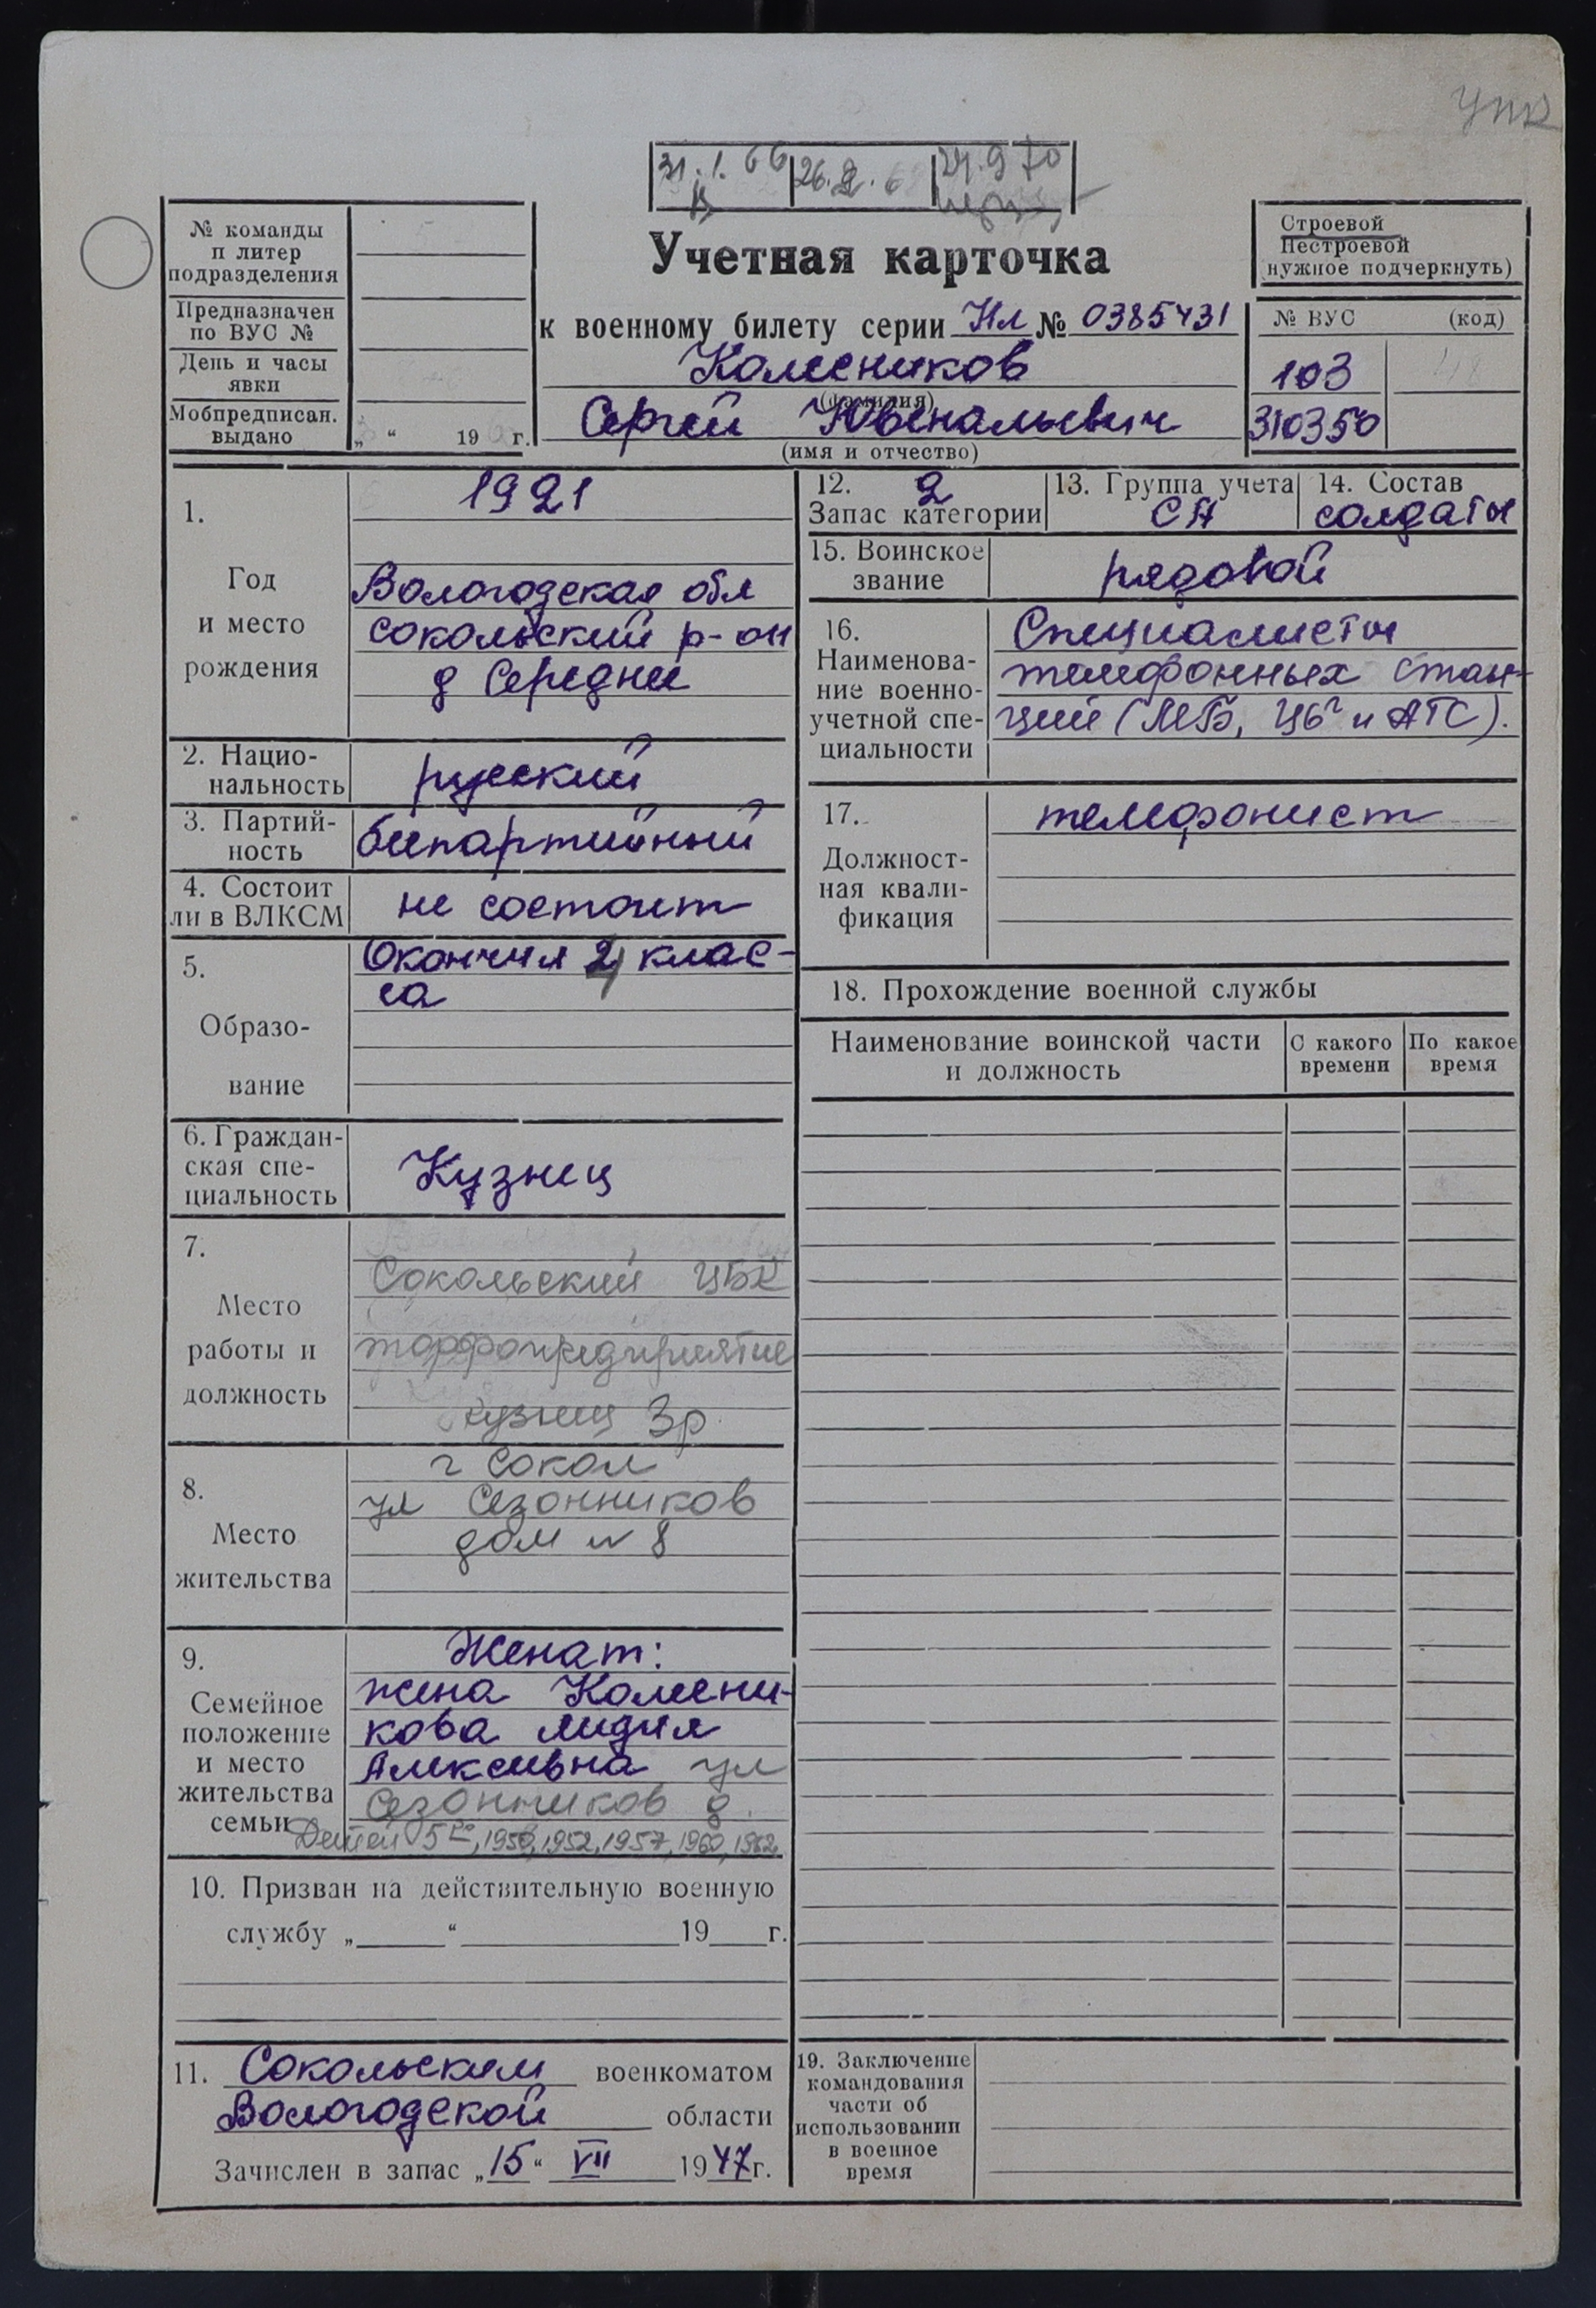 УПК
31.1.66
26.2.6
24.9 70
№ команды
п литер
подразделения
Предназначен
по ВУС №
День и часы
явки
Мобпредписан.
выдано „ “ 19 г.
Учетная карточка
к военному билету серии Нл № 0385431
Колесников
(фамилия)
Сергей Ювенальевич
(имя и отчество)
Строевой
Нестроевой
(нужное подчеркнуть)
№ ВУС (код)
103
310350
1.
Год
и место
рождения
1921
Вологодская обл
Сокольский р-он
д Середнее
2. Нацио-
нальность
русский
3. Партий-
ность
беспартийный
4. Состоит
ли в ВЛКСМ
не состоит
5.
Образо-
вание
Окончил 4 клас-
са
6. Граждан-
ская спе-
циальность
Кузнец
7.
Место
работы и
должность
Сокольский ЦБК
торфопредприятие
кузнец 3р
8.
Место
жительства
г Сокол
ул Сезонников
дом № 8
9.
Семейное
положение
и место
жительства
семьи
Женат:
жена Колесни-
кова Лидия
Алексеевна ул
Сезонников 8.
Детей 5, 1950, 1952, 1957, 1960, 1962
10. Призван на действительную военную
службу „ “ 19 г.
11. Сокольским военкоматом
Вологодской области
Зачислен в запас „15“ VII 1947г.
12. 2
Запас категории
13. Группа учета
СА
14. Состав
солдаты
15. Воинское
звание
рядовой
16.
Наименова-
ние военно-
учетной спе-
циальности
Специалисты
телефонных стан-
ций (МБ, ЦБ и АТС).
17.
Должност-
ная квали-
фикация
телефонист
18. Прохождение военной службы
Наименование воинской части
и должность
С какого
времени
По какое
время
19. Заключение
командования
части об
использовании
в военное
время